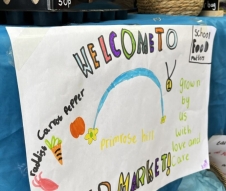 50p
WELCOME TO
School
FOOD
Matters
Carrot Pepper
Primrose hill
grown
by
us
with
love and
care
MARKET